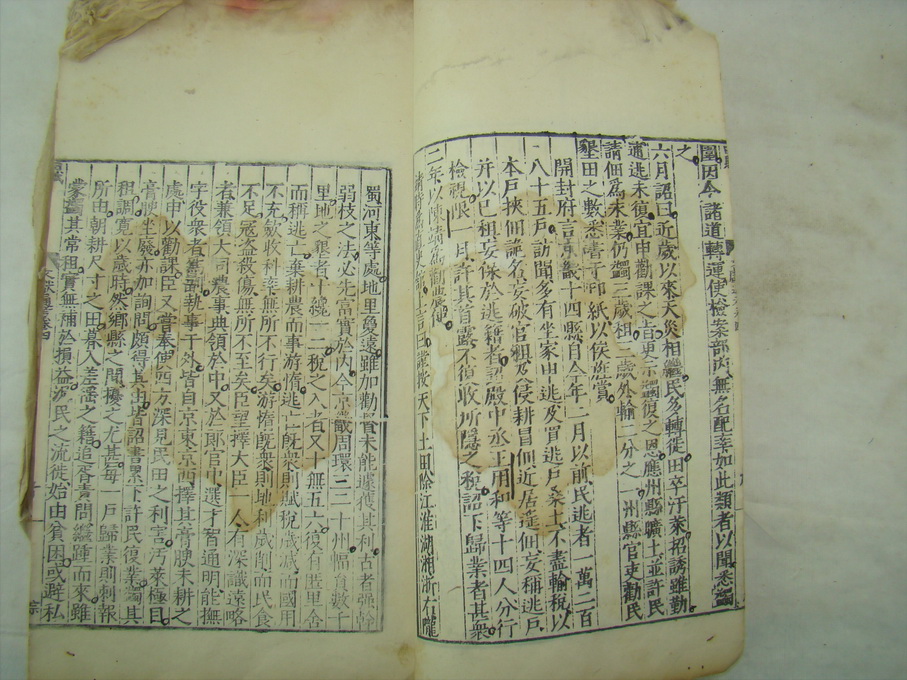 園因令諸道轉運使檢案部內無名配率如此類者以聞悉蠲
之
六月詔曰近歲以來天災相繼民多轉徙田卒汙萊招誘雖勤
逋逃未復宜申勸課之旨更示蠲復之恩應州縣曠土並許民
請佃為永業仍蠲三歲租三歲外輸三分之一州縣官吏勸民
墾田之數悉書于印紙以俟旌賞
開封府言京畿十四縣自今年二月以前民逃者一萬二百
八十五戶訪聞多有坐家申逃及買逃戶桑土不盡輸稅以
本戶挾佃詭名妄破官租及侵耕冒佃近居遙佃妄稱逃戶
并以已租妄保於逃籍者詔殿中丞王用和等十四人分行
檢視限一月許其首露不復收所隱之稅詔下歸業者甚衆
二年以陳靖為勸農使
靖時為直史館上言曰謹按天下土田除江淮湖湘浙右隴
蜀河東等處地里敻遠雖加勸督未能遽獲其利古者强幹
弱枝之法必先富實於內今京畿周環三二十州幅員數千
里地之墾者十纔一二稅之入者又十無五六復有匿里舍
而稱逃亡棄耕農而事游惰逃亡既衆則賦稅歲減而國用
不充斂收科率無所不行矣游惰既衆則地利歲削而民食
不足寇盗殺傷無所不至矣臣望擇大臣一人有深識遠略
者兼領大司農事典領於中又於郎官中選才智通明能撫
字役衆者為副執事于外皆自京東京西擇其膏腴未耕之
處申以勸課臣又嘗奉使四方深見民田之利害汙萊極目
膏腴坐廢亦加詢問頗得其由皆詔書累下許民復業蠲其
租調寬以歲時然鄉縣之間擾之尤甚每一戶歸業則刺報
所由朝耕尺寸之田暮入差徭之籍追胥責問繼踵而來雖
蒙蠲其常租實無補於損益况民之流徙始由貧困或避私